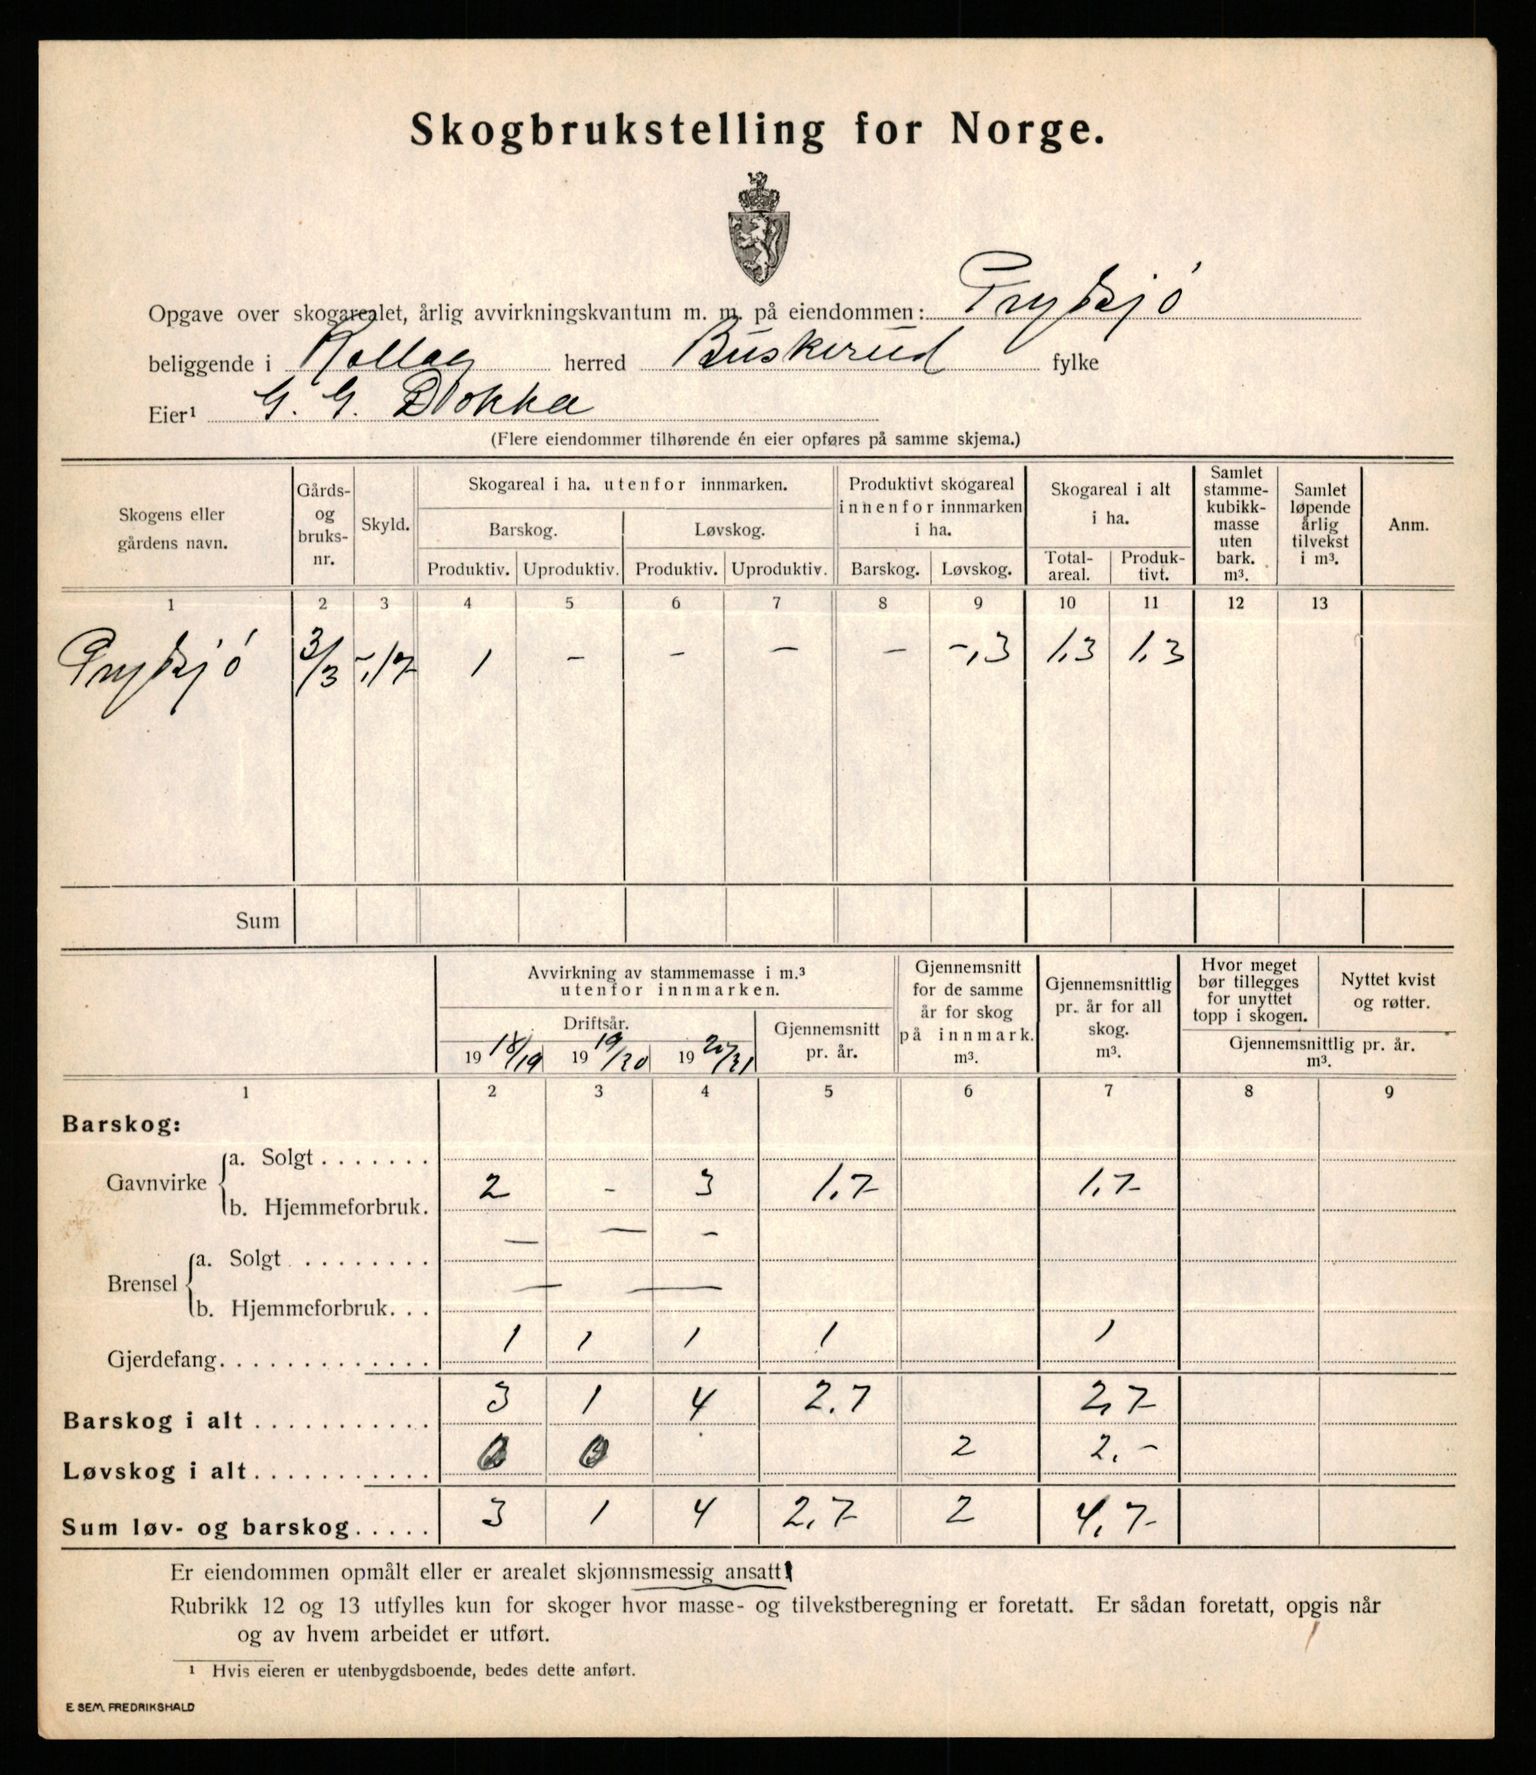 Skogbrukstelling for Norge.
Opgave over skogarealet, årlig avvirkningskvantum m. m. på eiendommen:
beliggende i Rollag herred Buskerud fylke
Eier¹ G. G. Dokka
(Flere eiendommer tilhørende én eier opføres på samme skjema.)
Skogens eller gårdens navn. Gårds- og bruks- nr. Skyld. Skogareal i ha. utenfor innmarken. Produktivt skogareal innenfor innmarken i ha. Skogareal i alt i ha. Samlet stamme- kubikk- masse uten bark. m³. Samlet løpende årlig tilvekst i m³. Anm.
Barskog. Løvskog.
Produktiv. Uproduktiv. Produktiv. Uproduktiv. Barskog. Løvskog. Total- areal. Produk- tivt.
1 2 3 4 5 6 7 8 9 10 11 12 13
3/3 -,17 1 - - - - -,3 1,3 1,3
Sum
Avvirkning av stammemasse i m.³ utenfor innmarken. Gjennemsnitt for de samme år for skog på innmark. m³. Gjennemsnittlig pr. år for all skog. m³. Hvor meget bør tillegges for unyttet topp i skogen. Nyttet kvist og røtter.
Driftsår. Gjennemsnitt pr. år. Gjennemsnittlig pr. år. m³.
19 18/19 19 19/20 19 20/21
1 2 3 4 5 6 7 8 9
Barskog:
Gavnvirke a. Solgt . . . . . . . 2 - 3 1,7 1,7
b. Hjemmeforbruk. — — -
Brensel a. Solgt . . . . . . . . — —
b. Hjemmeforbruk. . .
Gjerdefang. . . . . . . . . . . . . 1 1 1 1 1
Barskog i alt . . . . . . . . . . . 3 1 4 2.7 2,7
Løvskog i alt. . . . . . . . . . . 0 0 2 2.-
Sum løv- og barskog. . . . . 3 1 4 2,7 2 4,7
Er eiendommen opmålt eller er arealet skjønnsmessig ansatt
Rubrikk 12 og 13 utfylles kun for skoger hvor masse- og tilvekstberegning er foretatt. Er sådan foretatt, opgis når
og av hvem arbeidet er utført.
¹ Hvis eieren er utenbygdsboende, bedes dette anført.
E. SEM, FREDRIKSHALD